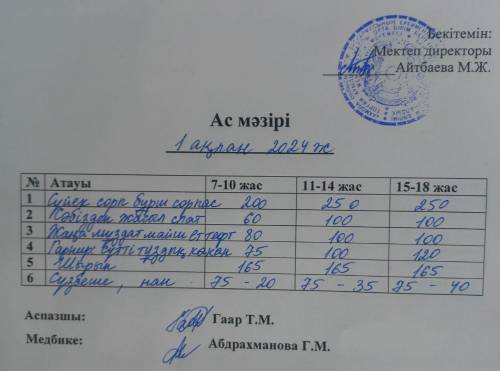 Бекітемін:
Мектеп директоры
Айтбаева М.Ж.
Ас мәзірі
1 ақпан 2024 ж
№ Атауы 7-10 жас 11-14 жас 15-18 жас
1 Сүйек сорпа бұрш сорпас 200 250 250
2 Кәбізден жасал слат 60 100 100
3 Жаңа мұздат майше ет тефт 80 100 100
4 Гарнир бүтті 75 100 120
5 Шырын 165 165 165
6 Сүзбеше, нан 75 - 20 75 - 35 75 - 40
Аспазшы: Гаар Т.М.
Медбике: Абдрахманова Г.М.